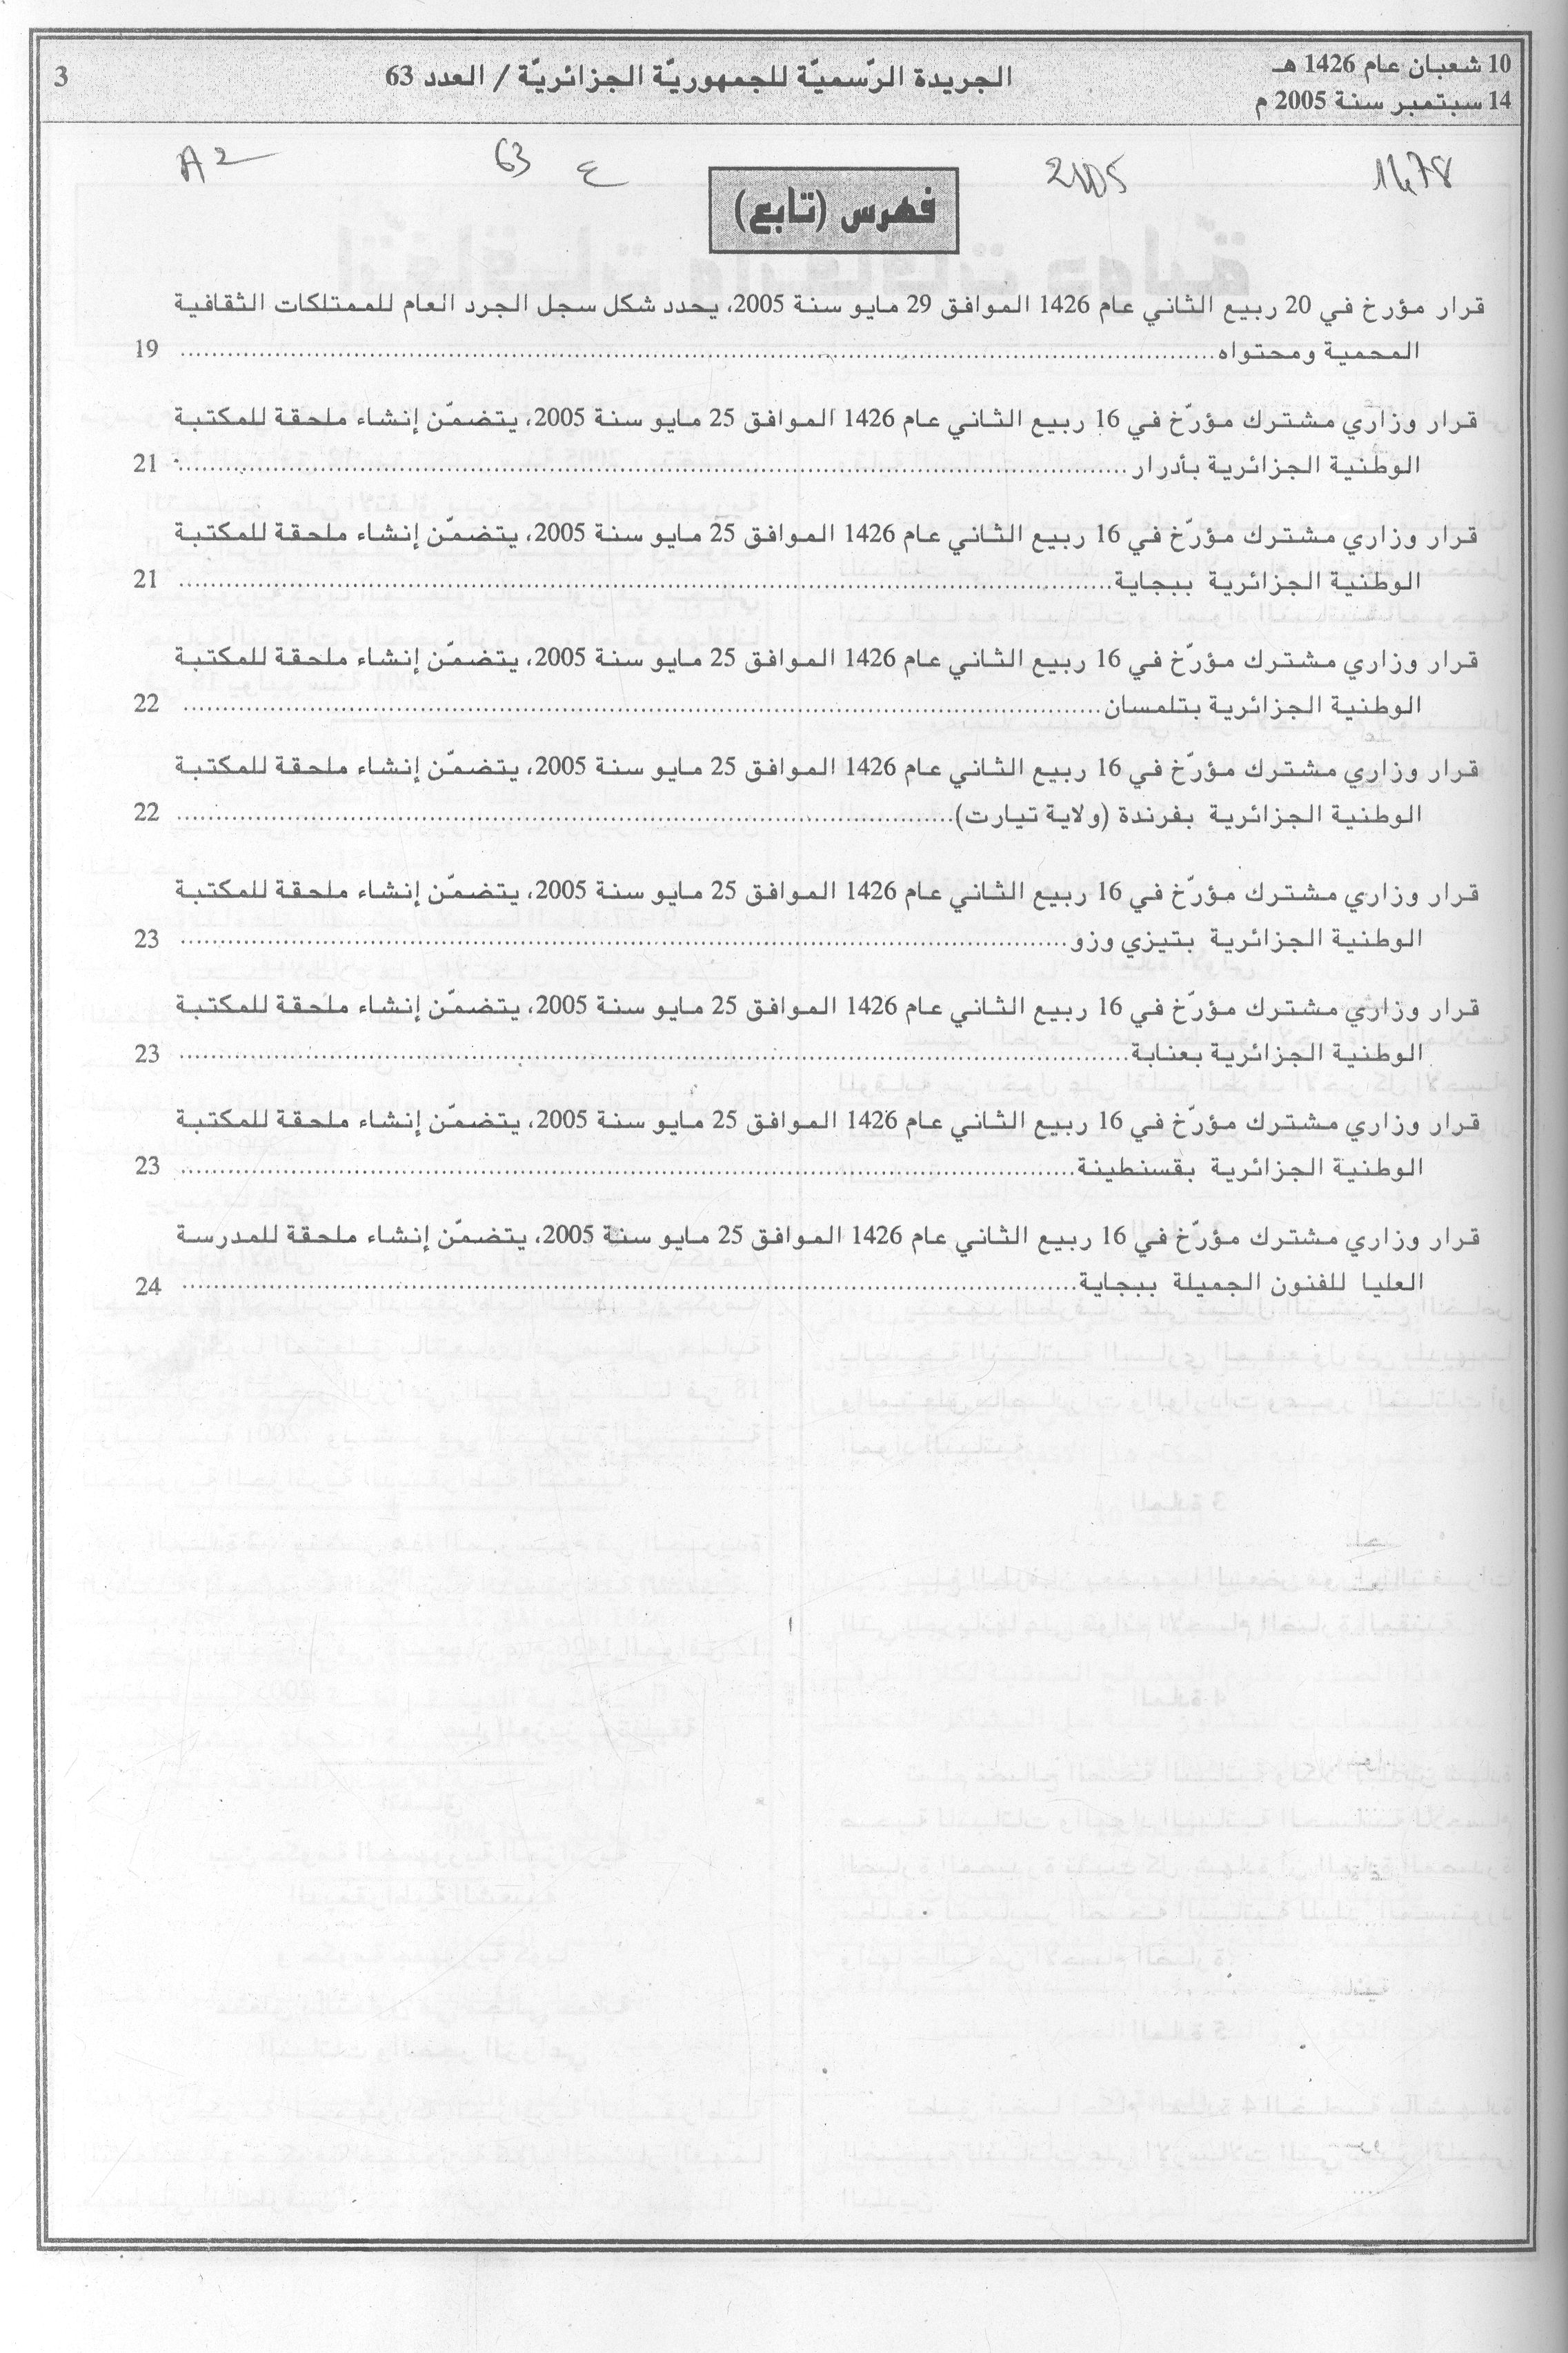 10 شعبان عام 1426 هـ
14 سبتمبر سنة 2005 م
الجريدة الرّسميّة للجمهوريّة الجزائريّة / العدد 63
3
1478
2005
ع
63
A2
فهرس (تابع)
قرار مؤرخ في 20 ربيع الثاني عام 1426 الموافق 29 مايو سنة 2005، يحدد شكل سجل الجرد العام للممتلكات الثقافية
المحمية ومحتواه................................................ 19
قرار وزاري مشترك مؤرّخ في 16 ربيع الثاني عام 1426 الموافق 25 مايو سنة 2005، يتضمّن إنشاء ملحقة للمكتبة
الوطنية الجزائرية بأدرار................................................ 21
قرار وزاري مشترك مؤرّخ في 16 ربيع الثاني عام 1426 الموافق 25 مايو سنة 2005، يتضمّن إنشاء ملحقة للمكتبة
الوطنية الجزائرية ببجاية................................................ 21
قرار وزاري مشترك مؤرّخ في 16 ربيع الثاني عام 1426 الموافق 25 مايو سنة 2005، يتضمّن إنشاء ملحقة للمكتبة
الوطنية الجزائرية بتلمسان................................................ 22
قرار وزاري مشترك مؤرّخ في 16 ربيع الثاني عام 1426 الموافق 25 مايو سنة 2005، يتضمّن إنشاء ملحقة للمكتبة
الوطنية الجزائرية بفرندة (ولاية تيارت)................................................ 22
قرار وزاري مشترك مؤرّخ في 16 ربيع الثاني عام 1426 الموافق 25 مايو سنة 2005، يتضمّن إنشاء ملحقة للمكتبة
الوطنية الجزائرية بتيزي وزو................................................ 23
قرار وزاري مشترك مؤرّخ في 16 ربيع الثاني عام 1426 الموافق 25 مايو سنة 2005، يتضمّن إنشاء ملحقة للمكتبة
الوطنية الجزائرية بعنابة................................................ 23
قرار وزاري مشترك مؤرّخ في 16 ربيع الثاني عام 1426 الموافق 25 مايو سنة 2005، يتضمّن إنشاء ملحقة للمكتبة
الوطنية الجزائرية بقسنطينة................................................ 23
قرار وزاري مشترك مؤرّخ في 16 ربيع الثاني عام 1426 الموافق 25 مايو سنة 2005، يتضمّن إنشاء ملحقة للمدرسة
العليا للفنون الجميلة ببجاية................................................ 24